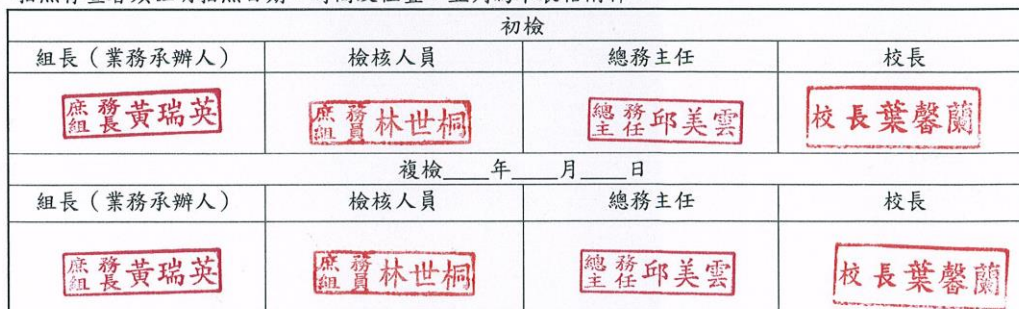 初檢
組長（業務承辦人） 檢核人員 總務主任 校長
庶務組長 黃瑞英 庶務組員 林世桐 總務主任 邱美雲 校長葉馨蘭
複檢____年____月____日
組長（業務承辦人） 檢核人員 總務主任 校長
庶務組長 黃瑞英 庶務組員 林世桐 總務主任 邱美雲 校長葉馨蘭